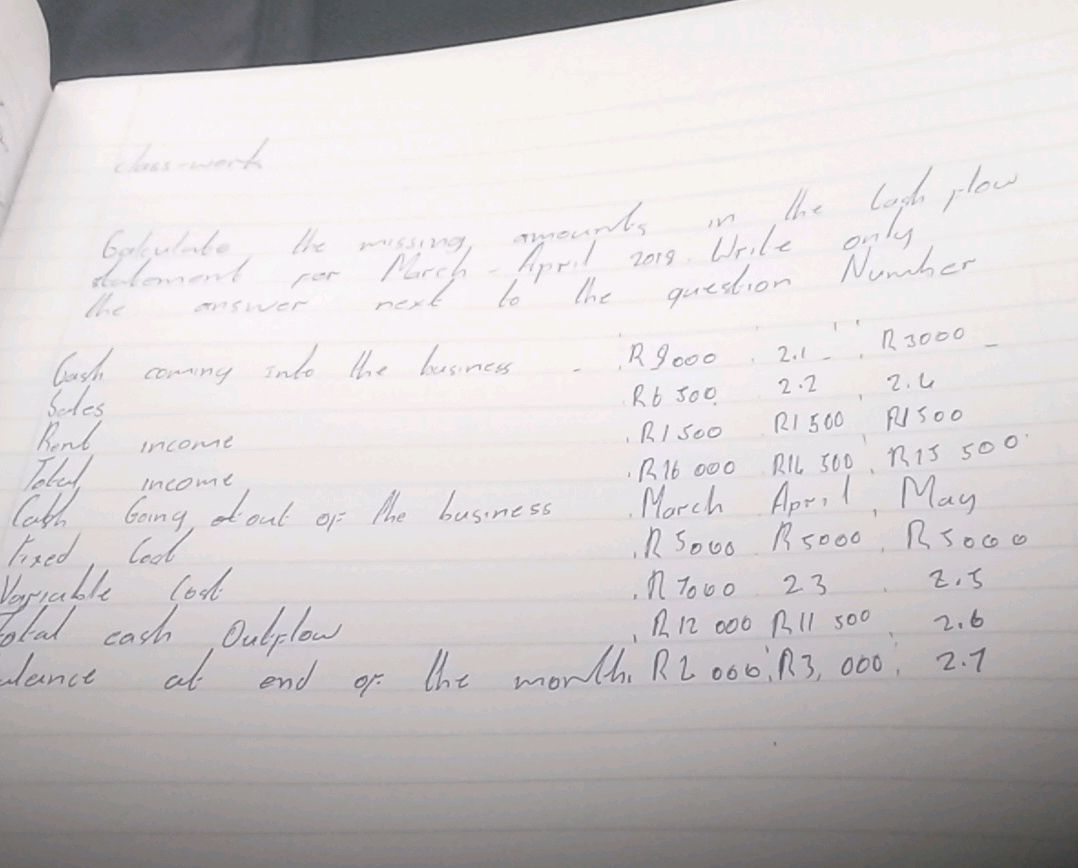 class-work
Calculate the missing, amounts in the Cash flow
statement for March - April 2019. Write only
the answer next to the question Number
Cash coming into the business - R9000 2.1 - R3000 -
Sales R6 500 2.2 2.4
Rent income R1 500 R1 500 R1 500
Total income R16 000 R14 500 R15 500
Cash Going out of the business March April, May
Fixed Cost R5000 R5000 R5000
Variable Cost R7000 23 2.5
Total cash Outflow R12 000 R11 500 2.6
alance at end of the month. R2 000 R3, 000 2.7